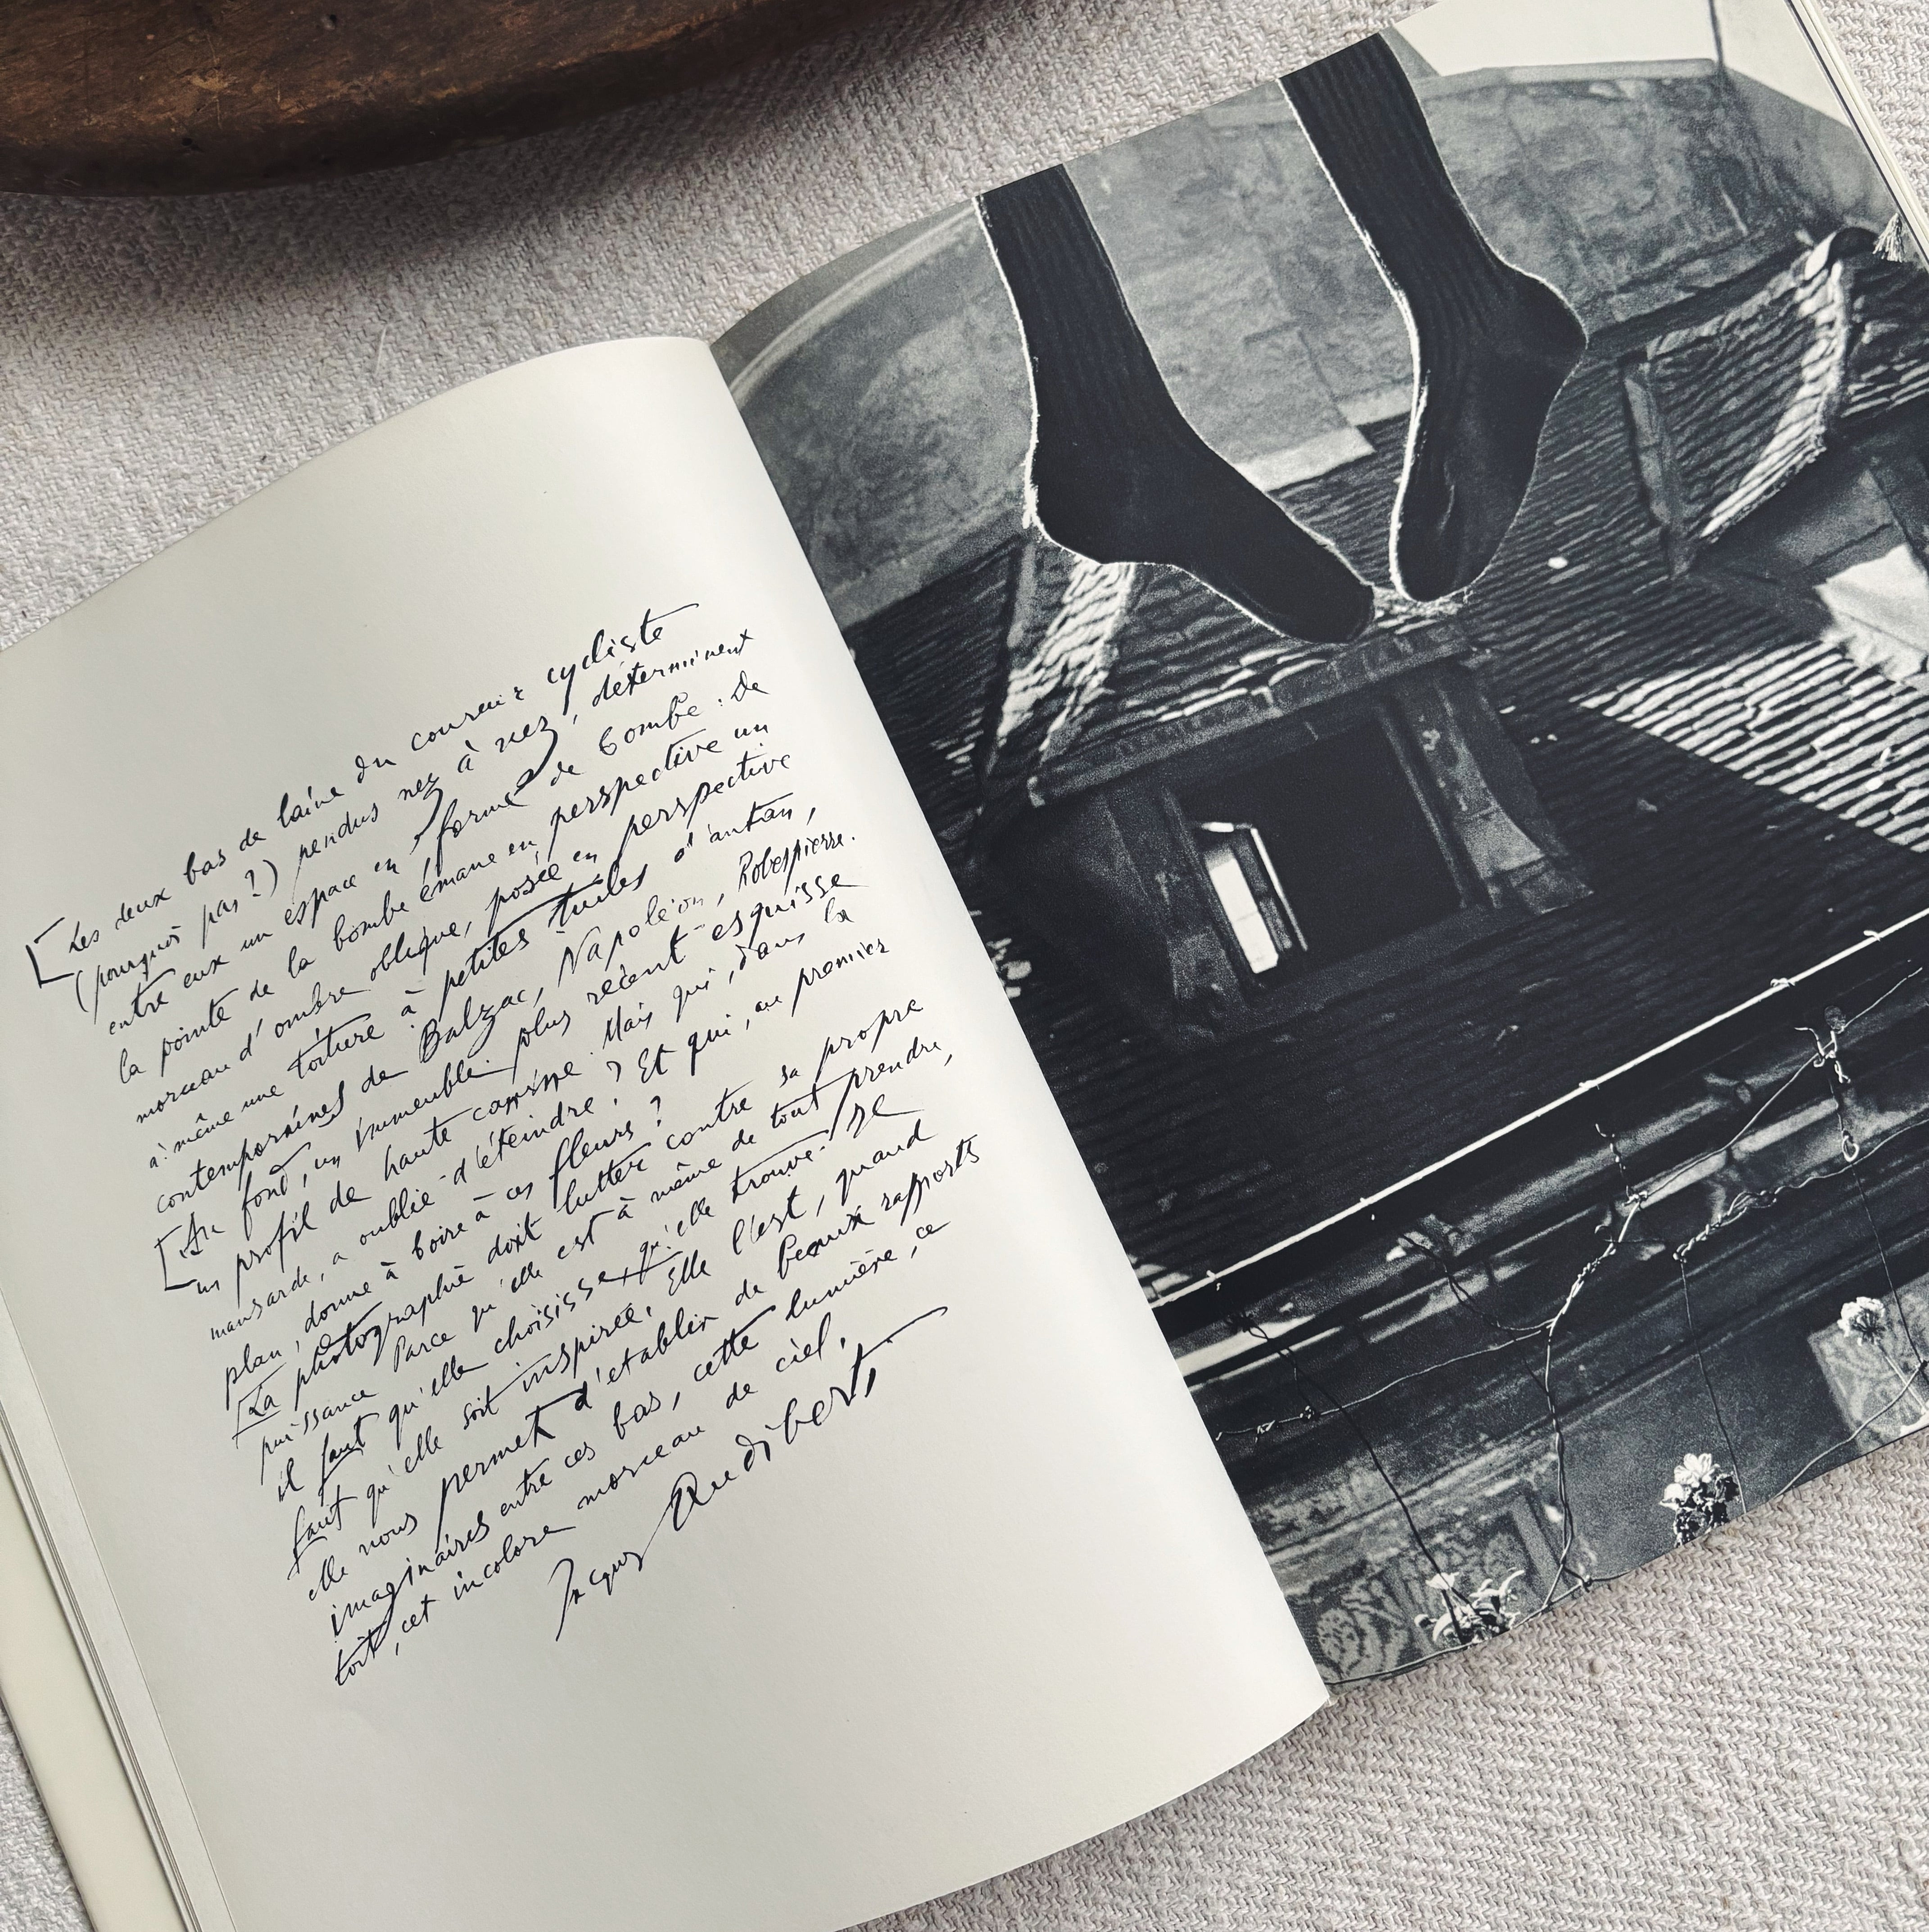 [Les deux bas de laine du coureur cycliste
(pourquoi pas?) pendus nez à nez, déterminent
entre eux un espace en forme de bombe. De
la pointe de la bombe émane en perspective un
morceau d'ombre oblique, posée en perspective
à même une toiture à petites tuiles d'antan,
contemporaines de Balzac, Napoléon, Robespierre.
[Au fond, un immeuble plus récent esquisse
un profil de haute Mais qui, dans la
mansarde, a oublié d'éteindre? Et qui, au premier
plan, donne à boire à ces fleurs?
[La photographie doit lutter contre sa propre
puissance Parce qu'elle est à même de tout prendre,
il faut qu'elle choisisse qu'elle trouve. Il
faut qu'elle soit inspirée. Elle l'est, quand
elle nous permet d'établir de beaux rapports
imaginaires entre ces bas, cette lumière, ce
toit, cet incolore morceau de ciel.
Jacques Audiberti